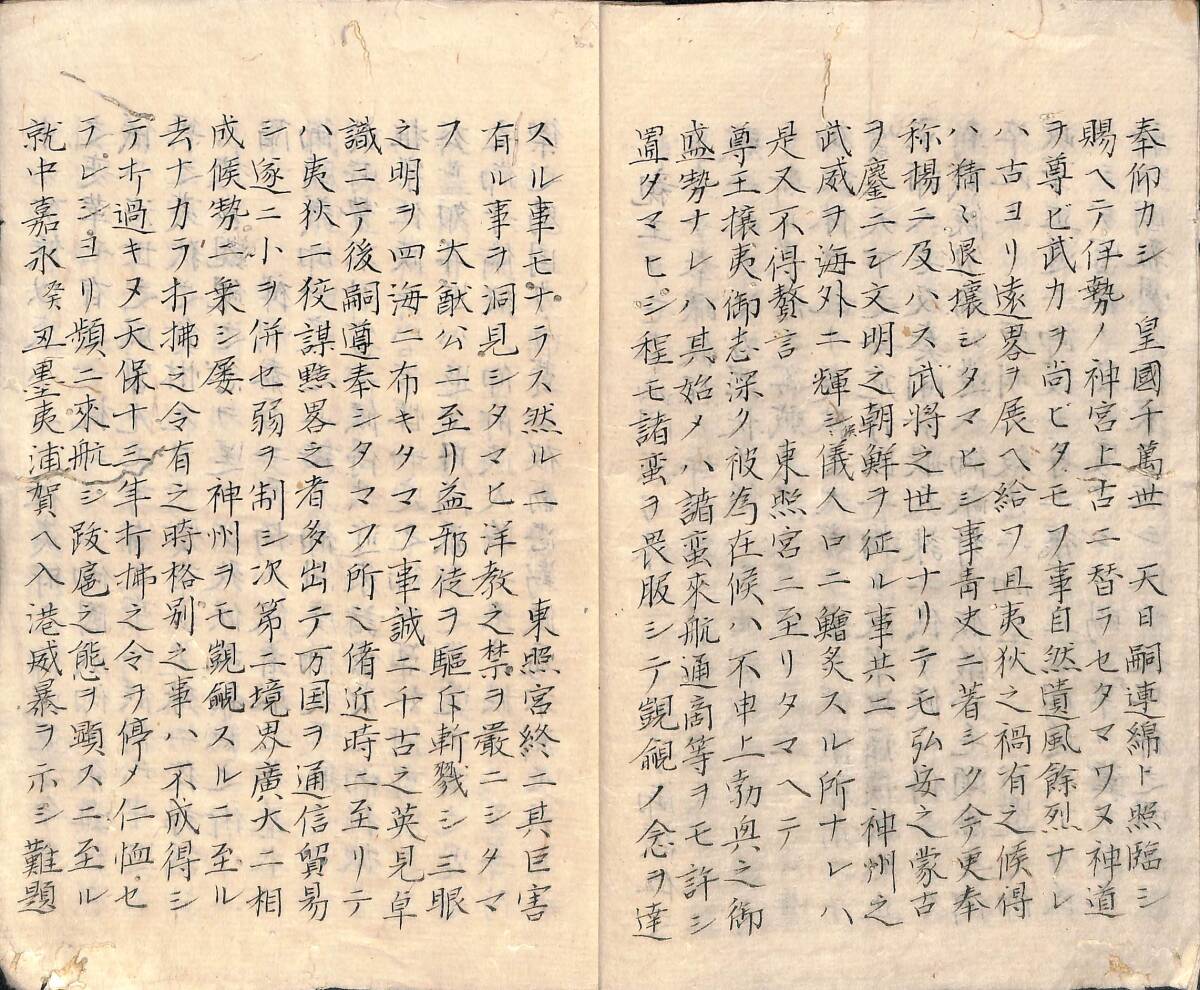 奉仰カシ　皇國千萬世　天日嗣連綿ト照臨シ
賜ヘテ伊勢ノ神宮上古ニ替ラセタマワヌ神道
ヲ尊ビ武力ヲ尚ビタモフ事自然遺風餘烈ナレ
ハ古ヨリ遠畧ヲ展ヘ給フ且夷狄之禍有之候得
ハ猶ミ退攘シタマヒシ事青史ニ著シク今更奉
称揚ニ及ハス武將之世トナリテモ弘安之蒙古
ヲ鏖ニシ文明之朝鮮ヲ征ル事共ニ　神州之
武威ヲ海外ニ輝シ候儀人口ニ鱠炙スル所ナレハ
是又不得贅言　東照宮ニ至リタマヘテ
尊王攘夷御志深ク被為在候ハ不申上勃興之御
盛勢ナレハ其始メハ諸蛮來航通商等ヲモ許シ
置タマヒシ程モ諸蛮ヲ畏服シテ覬覦ノ念ヲ達
スル事モナラス然ルニ　東照宮終ニ其巨害
有ル事ヲ洞見シタマヒ洋教之禁ヲ嚴ニシタマ
フ　大猷公ニ至リ益邪徒ヲ驅斥斬戮シ三眼
之明ヲ四海ニ布キタマフ事誠ニ千古之英見卓
識ニテ後嗣遵奉シタマフ所ヘ偖近時ニ至リテ
ハ夷狄ニ狡謀黠畧之者多出テ万国ヲ通信貿易
シ遂ニ小ヲ併セ弱ヲ制シ次第ニ境界廣大ニ相
成候勢ニ乗シ屡　神州ヲモ覬覦スルニ至ル
去ナカラ打拂之令有之時格別之事ハ不成得シ
テ打過キヌ天保十三年打拂之令ヲ停メ仁恤セ
ラレシヨリ頻ニ來航シ跋扈之態ヲ顕スニ至ル
就中嘉永癸丑墨夷浦賀ヘ入港威暴ヲ示シ難題